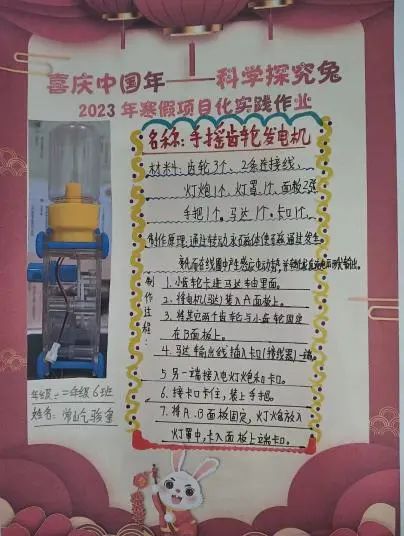 喜庆中国年——科学探究兔
2023年寒假项目化实践作业
名称:手摇齿轮发电机
材料:齿轮3个、2条连接线、
灯炮1个、灯罩1个、面板2张
手把1个、马达1个、卡口1个、
制作原理:通过转动永磁体使磁通发生
制作过程:
1.小齿轮卡进马达轴里面。
2.将电机(达)装入A面板上。
3.将其它两个齿轮与小齿轮固定
在B面板上。
4.马达输出线插入卡口一端
5.另一端接入电灯炮和卡口。
6.接卡口卡住,装上手把。
7.将A.B面板固定,灯炮放入
灯罩中,卡入面板上端卡口。
年级:二年级6班
姓名: